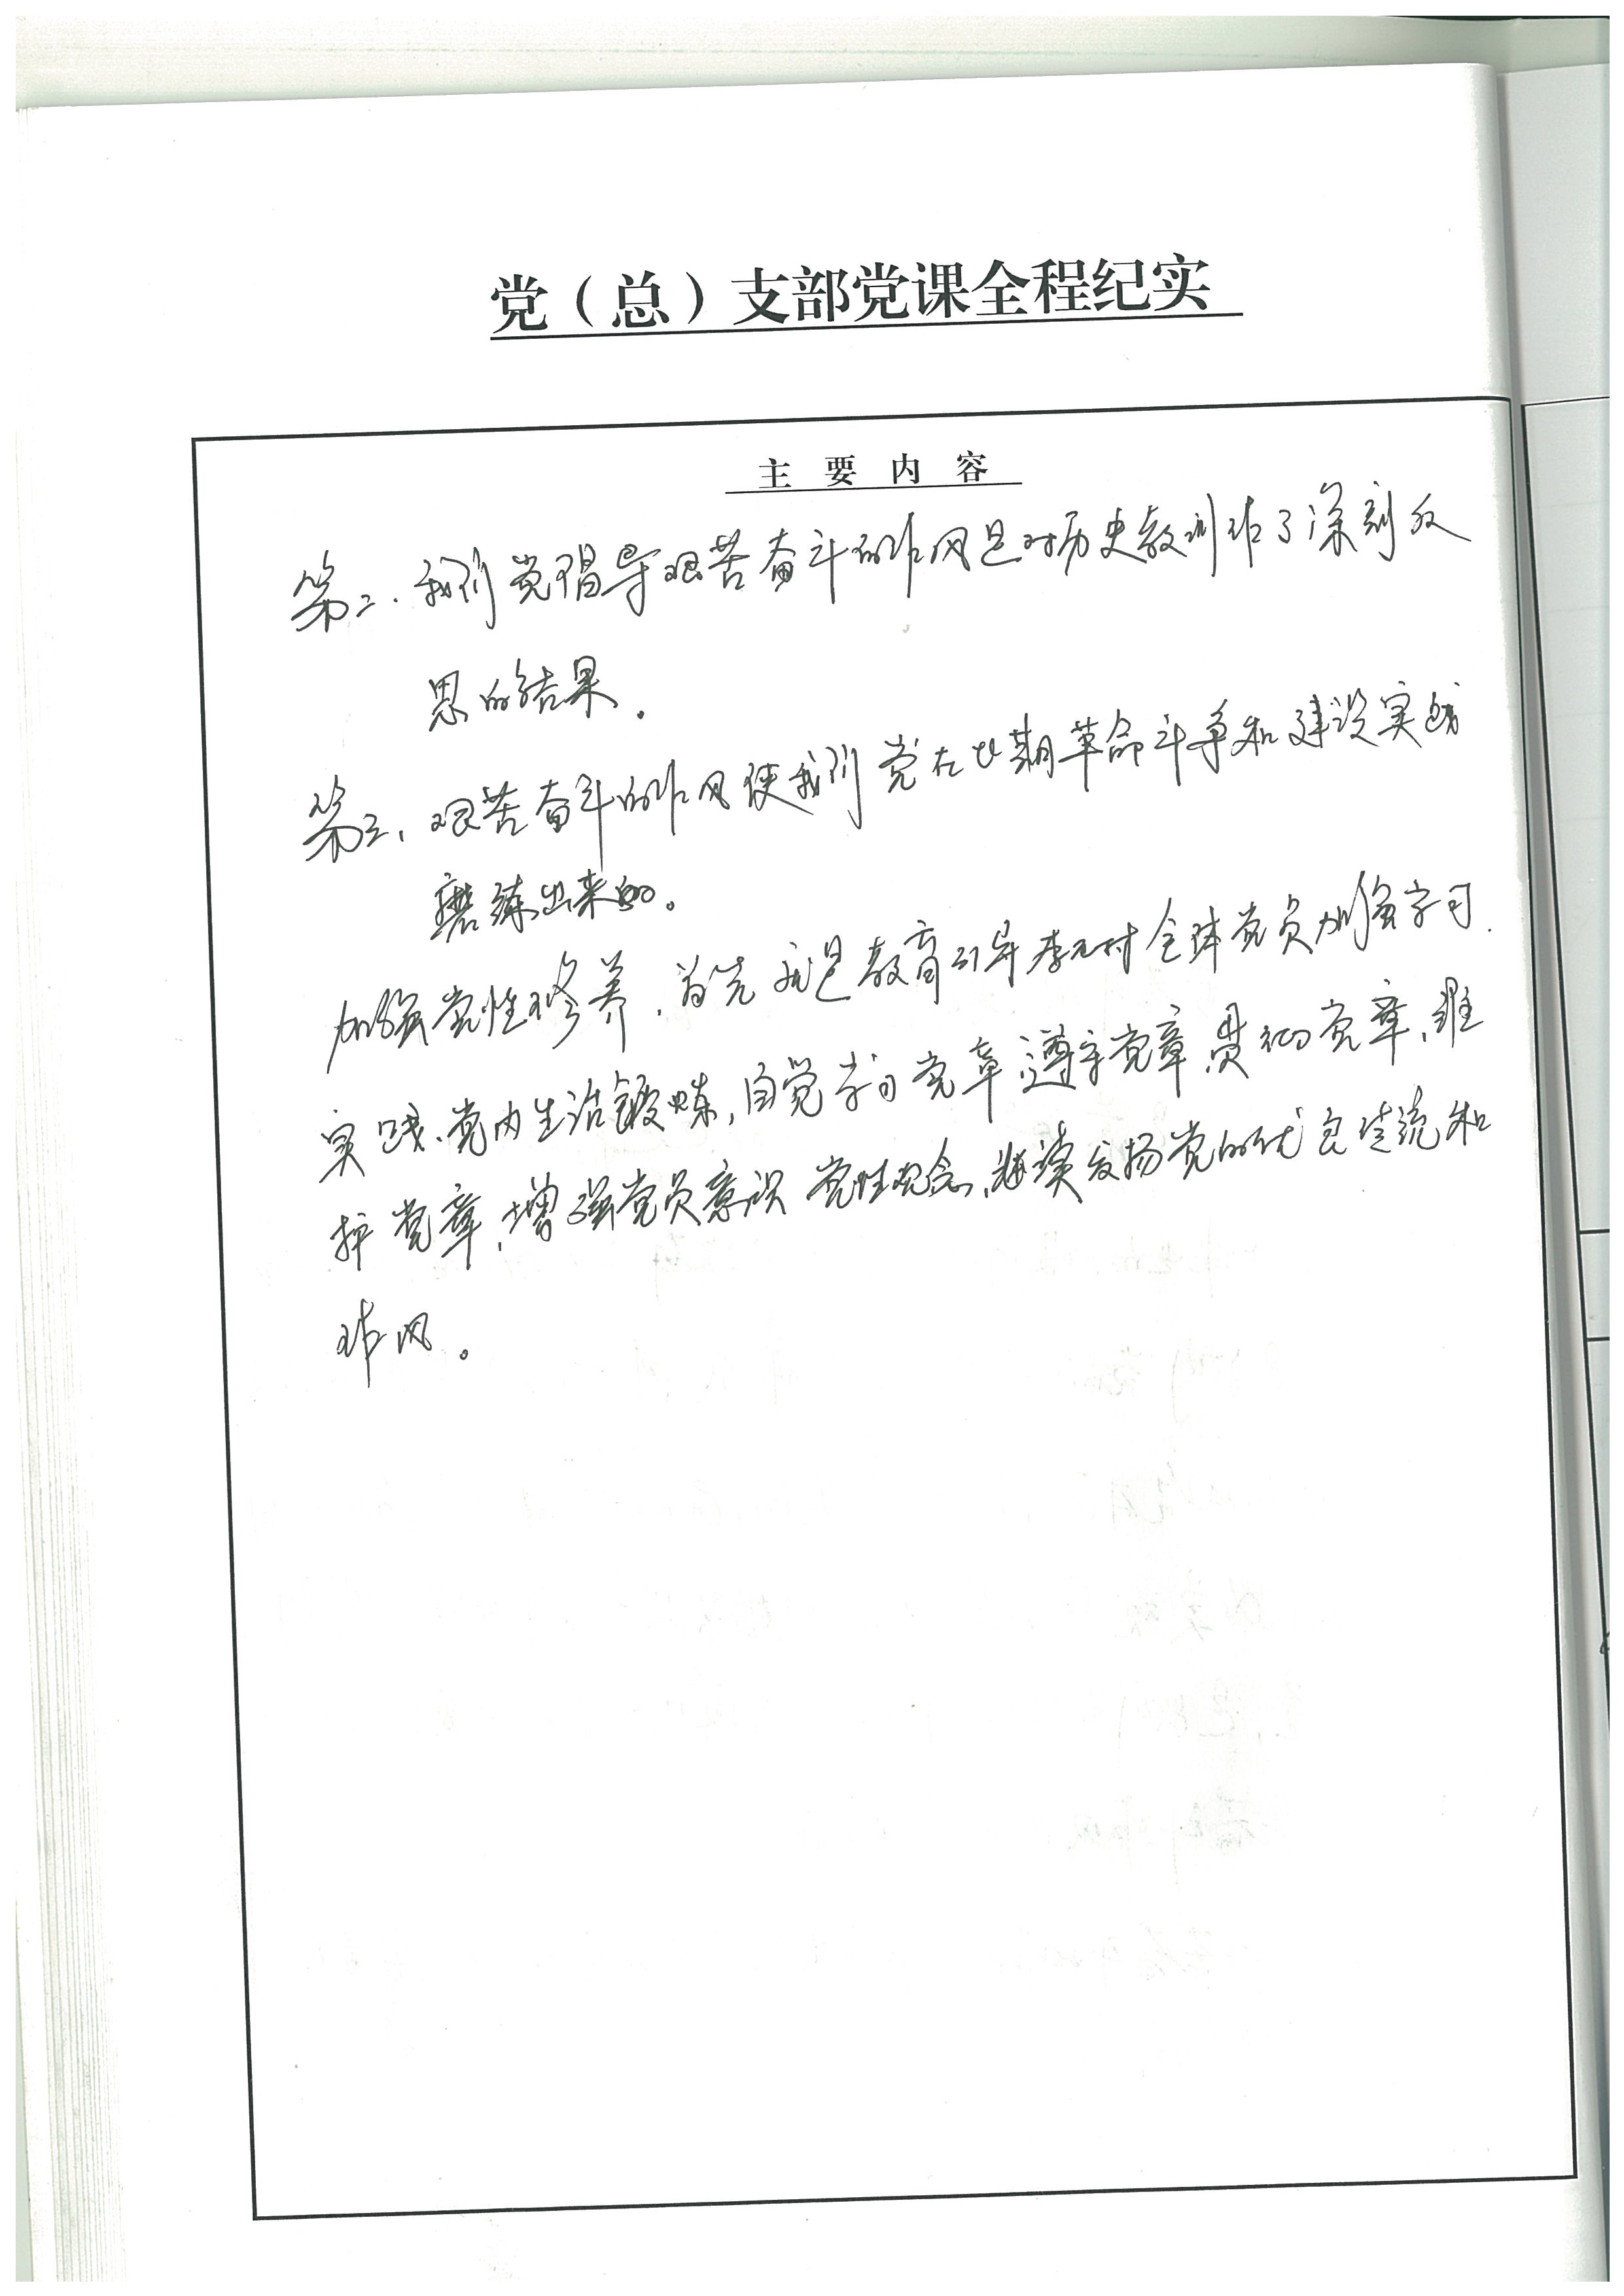 党（总）支部党课全程纪实
主要内容
第二、我们党倡导艰苦奋斗的作风是对历史教训作了深刻反
思的结果。
第三、艰苦奋斗的作风使我们党在长期革命斗争和建设实践
磨练出来的。
加强党性修养，首先就是教育引导全体党员加强学习、
实践、党内生活锻炼，自觉学习党章遵守党章贯彻党章、维
护党章，增强党员意识党性观念，继续发扬党的优良传统和
作风。